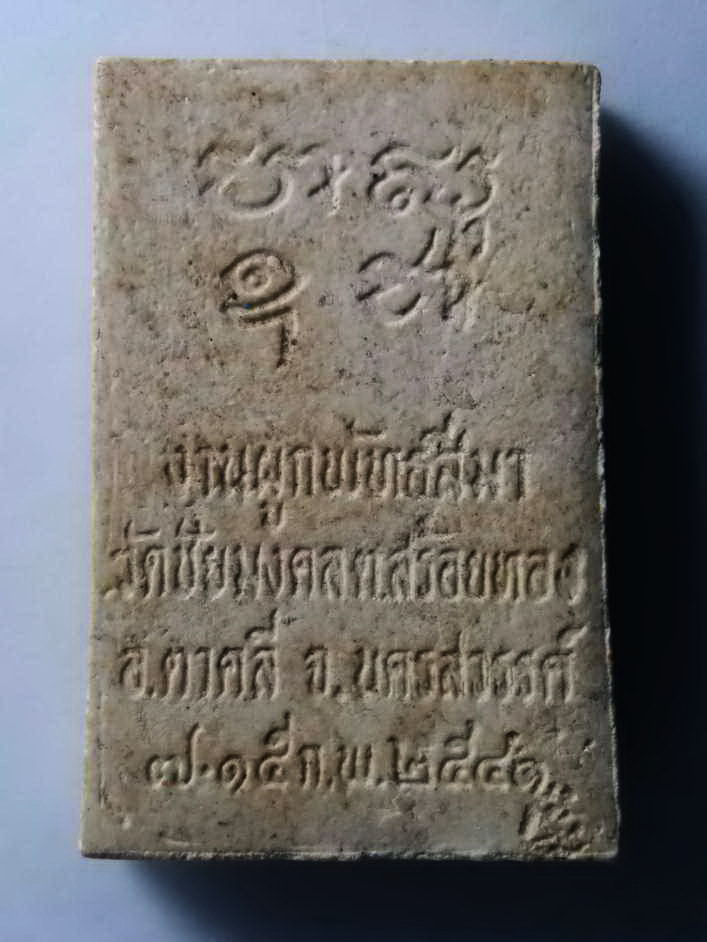 งานผูกพัทธสีมา
วัดชัยมงคล ต.สร้อยทอง
อ.ตาคลี จ.นครสวรรค์
๗-๑๕ ก.พ. ๒๕๔๑